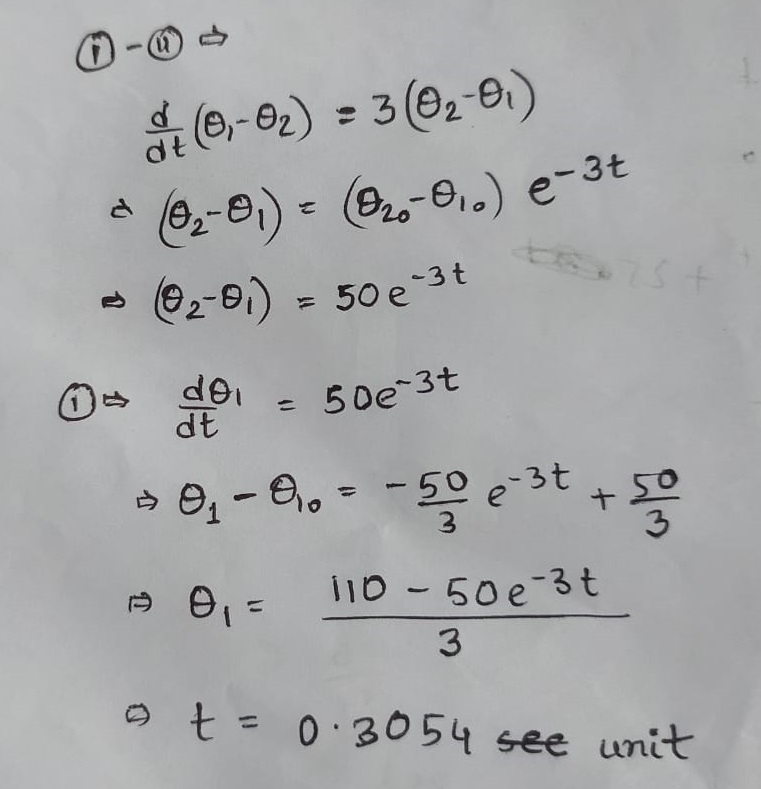 ⓘ - ⓘⓘ ⇨
d/dt (θ₁ - θ₂) = 3(θ₂ - θ₁)
⇒ (θ₂ - θ₁) = (θ₂₀ - θ₁₀) e^{-3t}
⇒ (θ₂ - θ₁) = 50 e^{-3t}
ⓘ ⇒ dθ₁/dt = 50e^{-3t}
⇒ θ₁ - θ₁₀ = - 50/3 e^{-3t} + 50/3
⇒ θ₁ = (110 - 50e^{-3t})/3
⇒ t = 0.3054 s̶e̶e̶ unit